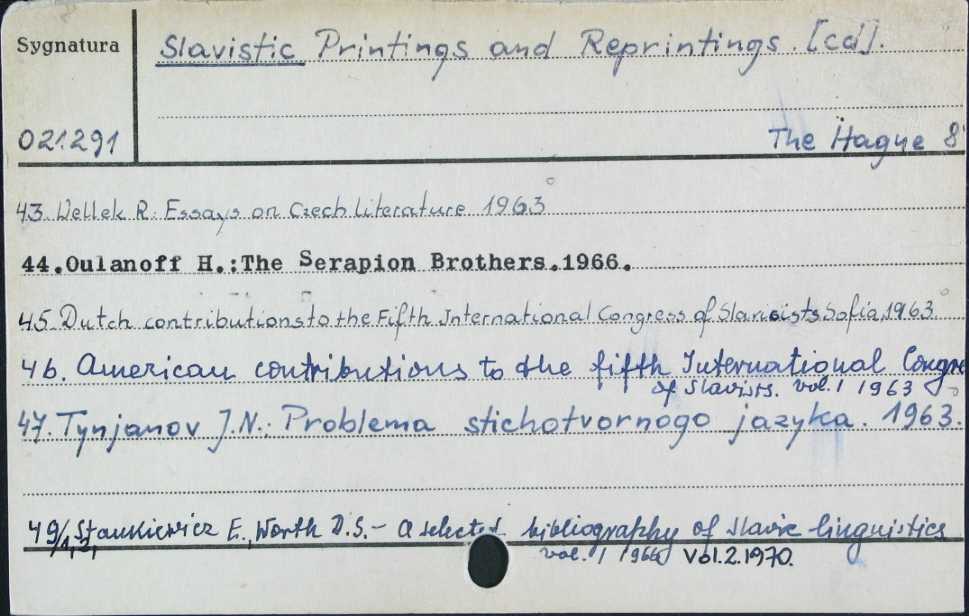 Sygnatura
Slavistic Printings and Reprintings. [cd].
021291
The Hague 8°
43. Wellek R: Essays on Czech Literature 1963
44.Oulanoff H.:The Serapion Brothers.1966.
45. Dutch contributions to the Fifth International Congress of Slavicists Sofia, 1963
46. American contributions to the fifth International Congre
of Slavists. vol. 1 1963
47. Tynjanov J.N.: Problema stichotvornogo jazyka. 1963.
49/1,2, Stankiewicz E., Worth D.S. - A selected bibliography of slavic linguistics
vol. 1 1966 Vol.2.1970.